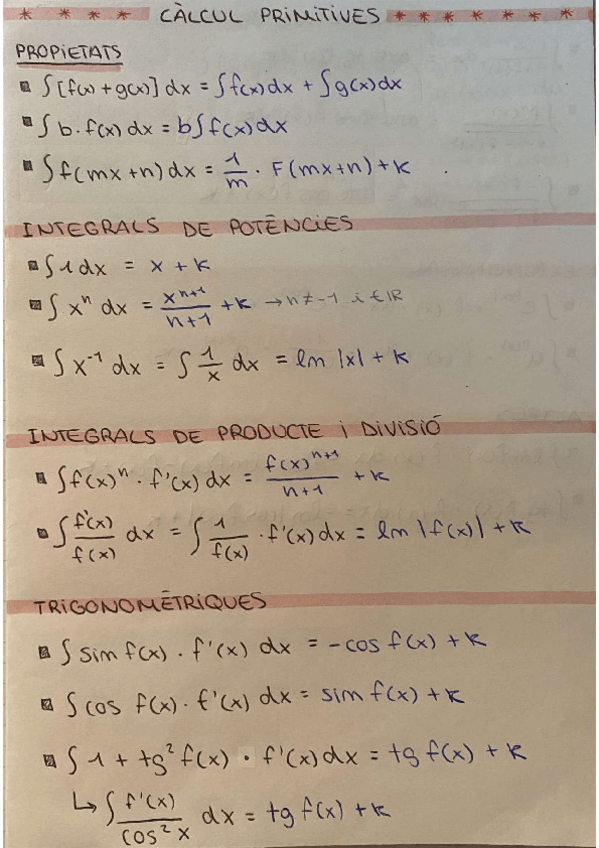 * * * * CÀLCUL PRIMITIVES * * * * * * *
PROPIETATS
▪ ∫[f(x) + g(x)] dx = ∫f(x)dx + ∫g(x)dx
▪ ∫ b · f(x) dx = b∫f(x)dx
▪ ∫f(mx+n) dx = 1/m · F(mx+n) + K
INTEGRALS DE POTÈNCIES
▪ ∫1 dx = x + K
▪ ∫xⁿ dx = xⁿ⁺¹/n+1 + K → n ≠ -1 i ∈ ℝ
▪ ∫x⁻¹ dx = ∫ 1/x dx = ln |x| + K
INTEGRALS DE PRODUCTE i DIVISIÓ
▪ ∫f(x)ⁿ · f'(x) dx = f(x)ⁿ⁺¹/n+1 + K
▪ ∫ f'(x)/f(x) dx = ∫ 1/f(x) · f'(x) dx = ln |f(x)| + K
TRIGONOMÈTRIQUES
▪ ∫ sin f(x) · f'(x) dx = -cos f(x) + K
▪ ∫ cos f(x) · f'(x) dx = sin f(x) + K
▪ ∫ 1 + tg² f(x) · f'(x) dx = tg f(x) + K
↳ ∫ f'(x)/cos² x dx = tg f(x) + K